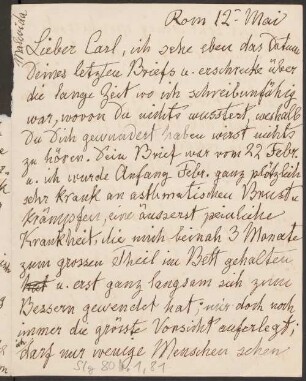 Rom 12ten Mai
Lieber Carl, ich sehe eben das Datum
Deines letzten Briefs u. erschrecke über
die lange Zeit wo ich schreibunfähig
war, wovon Du nichts wusstest, weshalb
Du Dich gewundert haben wirst nichts
zu hören. Dein Brief war vom 22 Febr.
u. ich wurde Anfang Febr. ganz plötzlich
sehr krank an asthmatischen Brust-
krämpfen, eine äusserst peinliche
Krankheit, die mich beinah 3 Monate
zum grossen Theil im Bett gehalten
hat u. erst ganz langsam sich zum
Bessern gewendet hat; mir doch noch
immer die grösste Vorsicht auferlegt;
ich darf nur wenige Menschen sehen